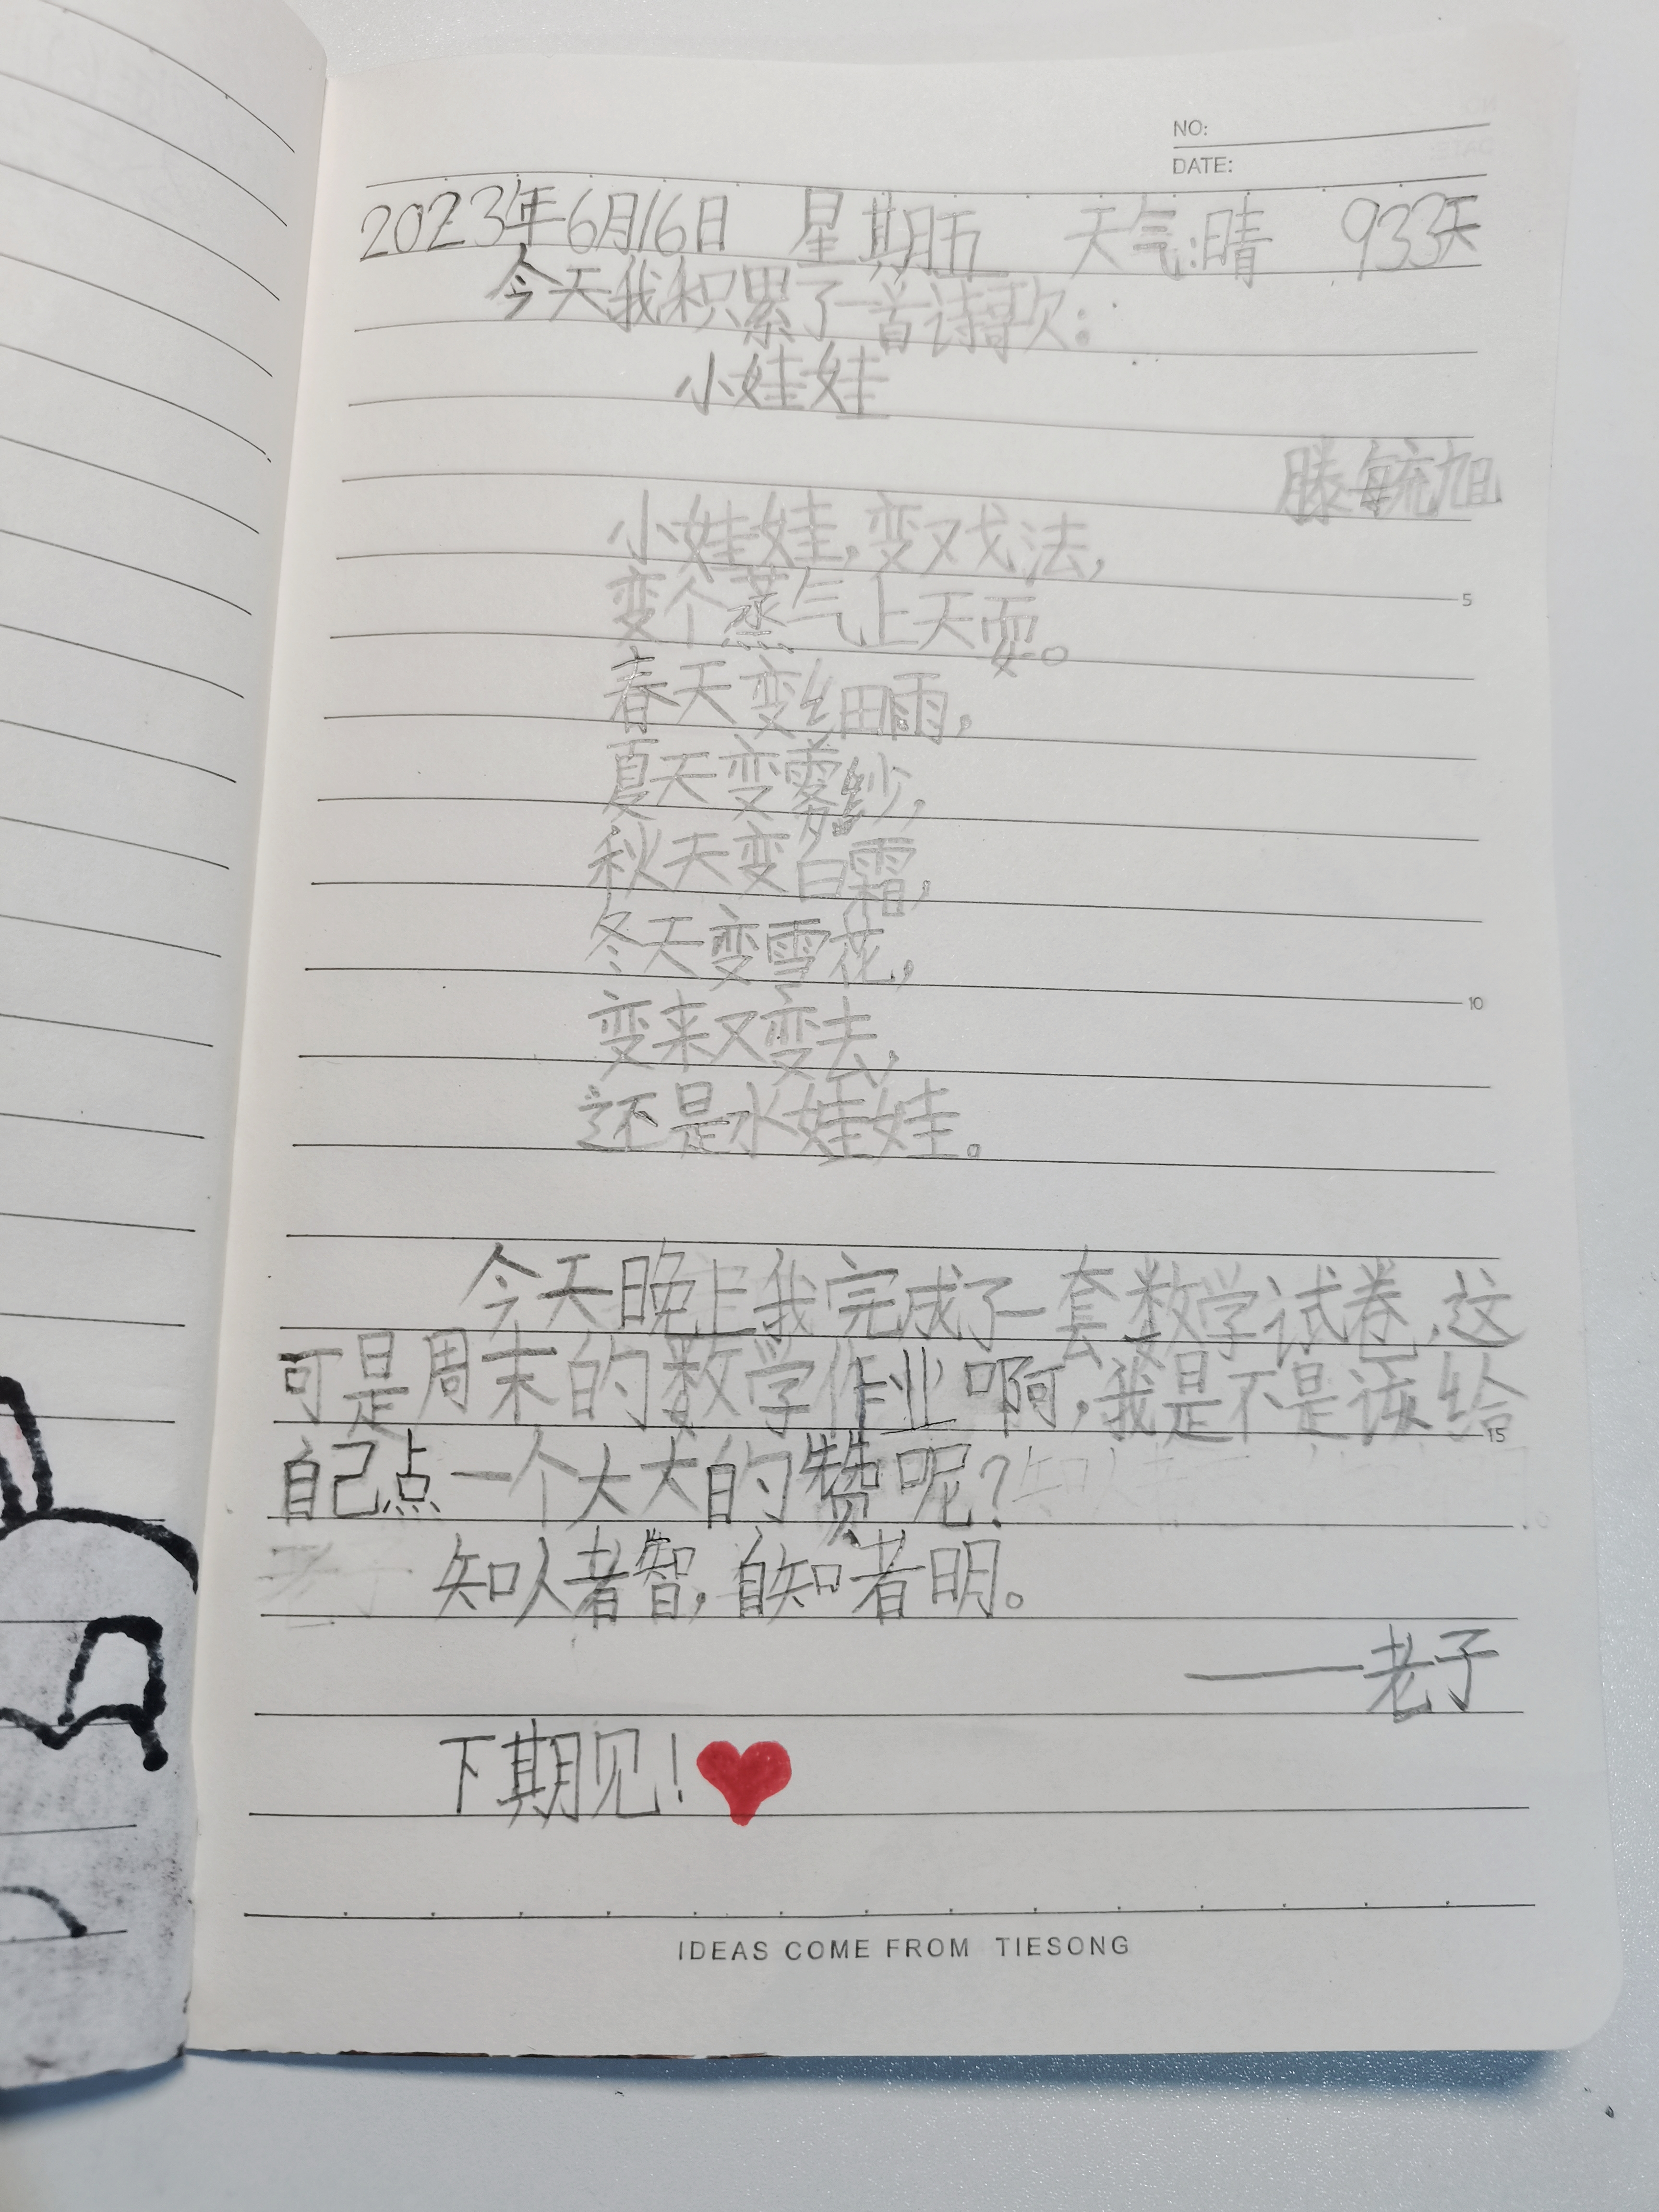 NO:
DATE:
2023年6月16日 星期五 天气:晴 933天
今天我积累了一首诗歌:
小娃娃
滕毓旭
小娃娃,变戏法,
变个蒸气上天耍。
春天变细雨,
夏天变雾纱,
秋天变白霜,
冬天变雪花,
变来又变去,
还是水娃娃。
今天晚上我完成了一套数学试卷,这
可是周末的数学作业啊,我是不是该给
自己点一个大大的赞呢?
知人者智,自知者明。
——老子
下期见!
5
10
15
IDEAS COME FROM TIESONG